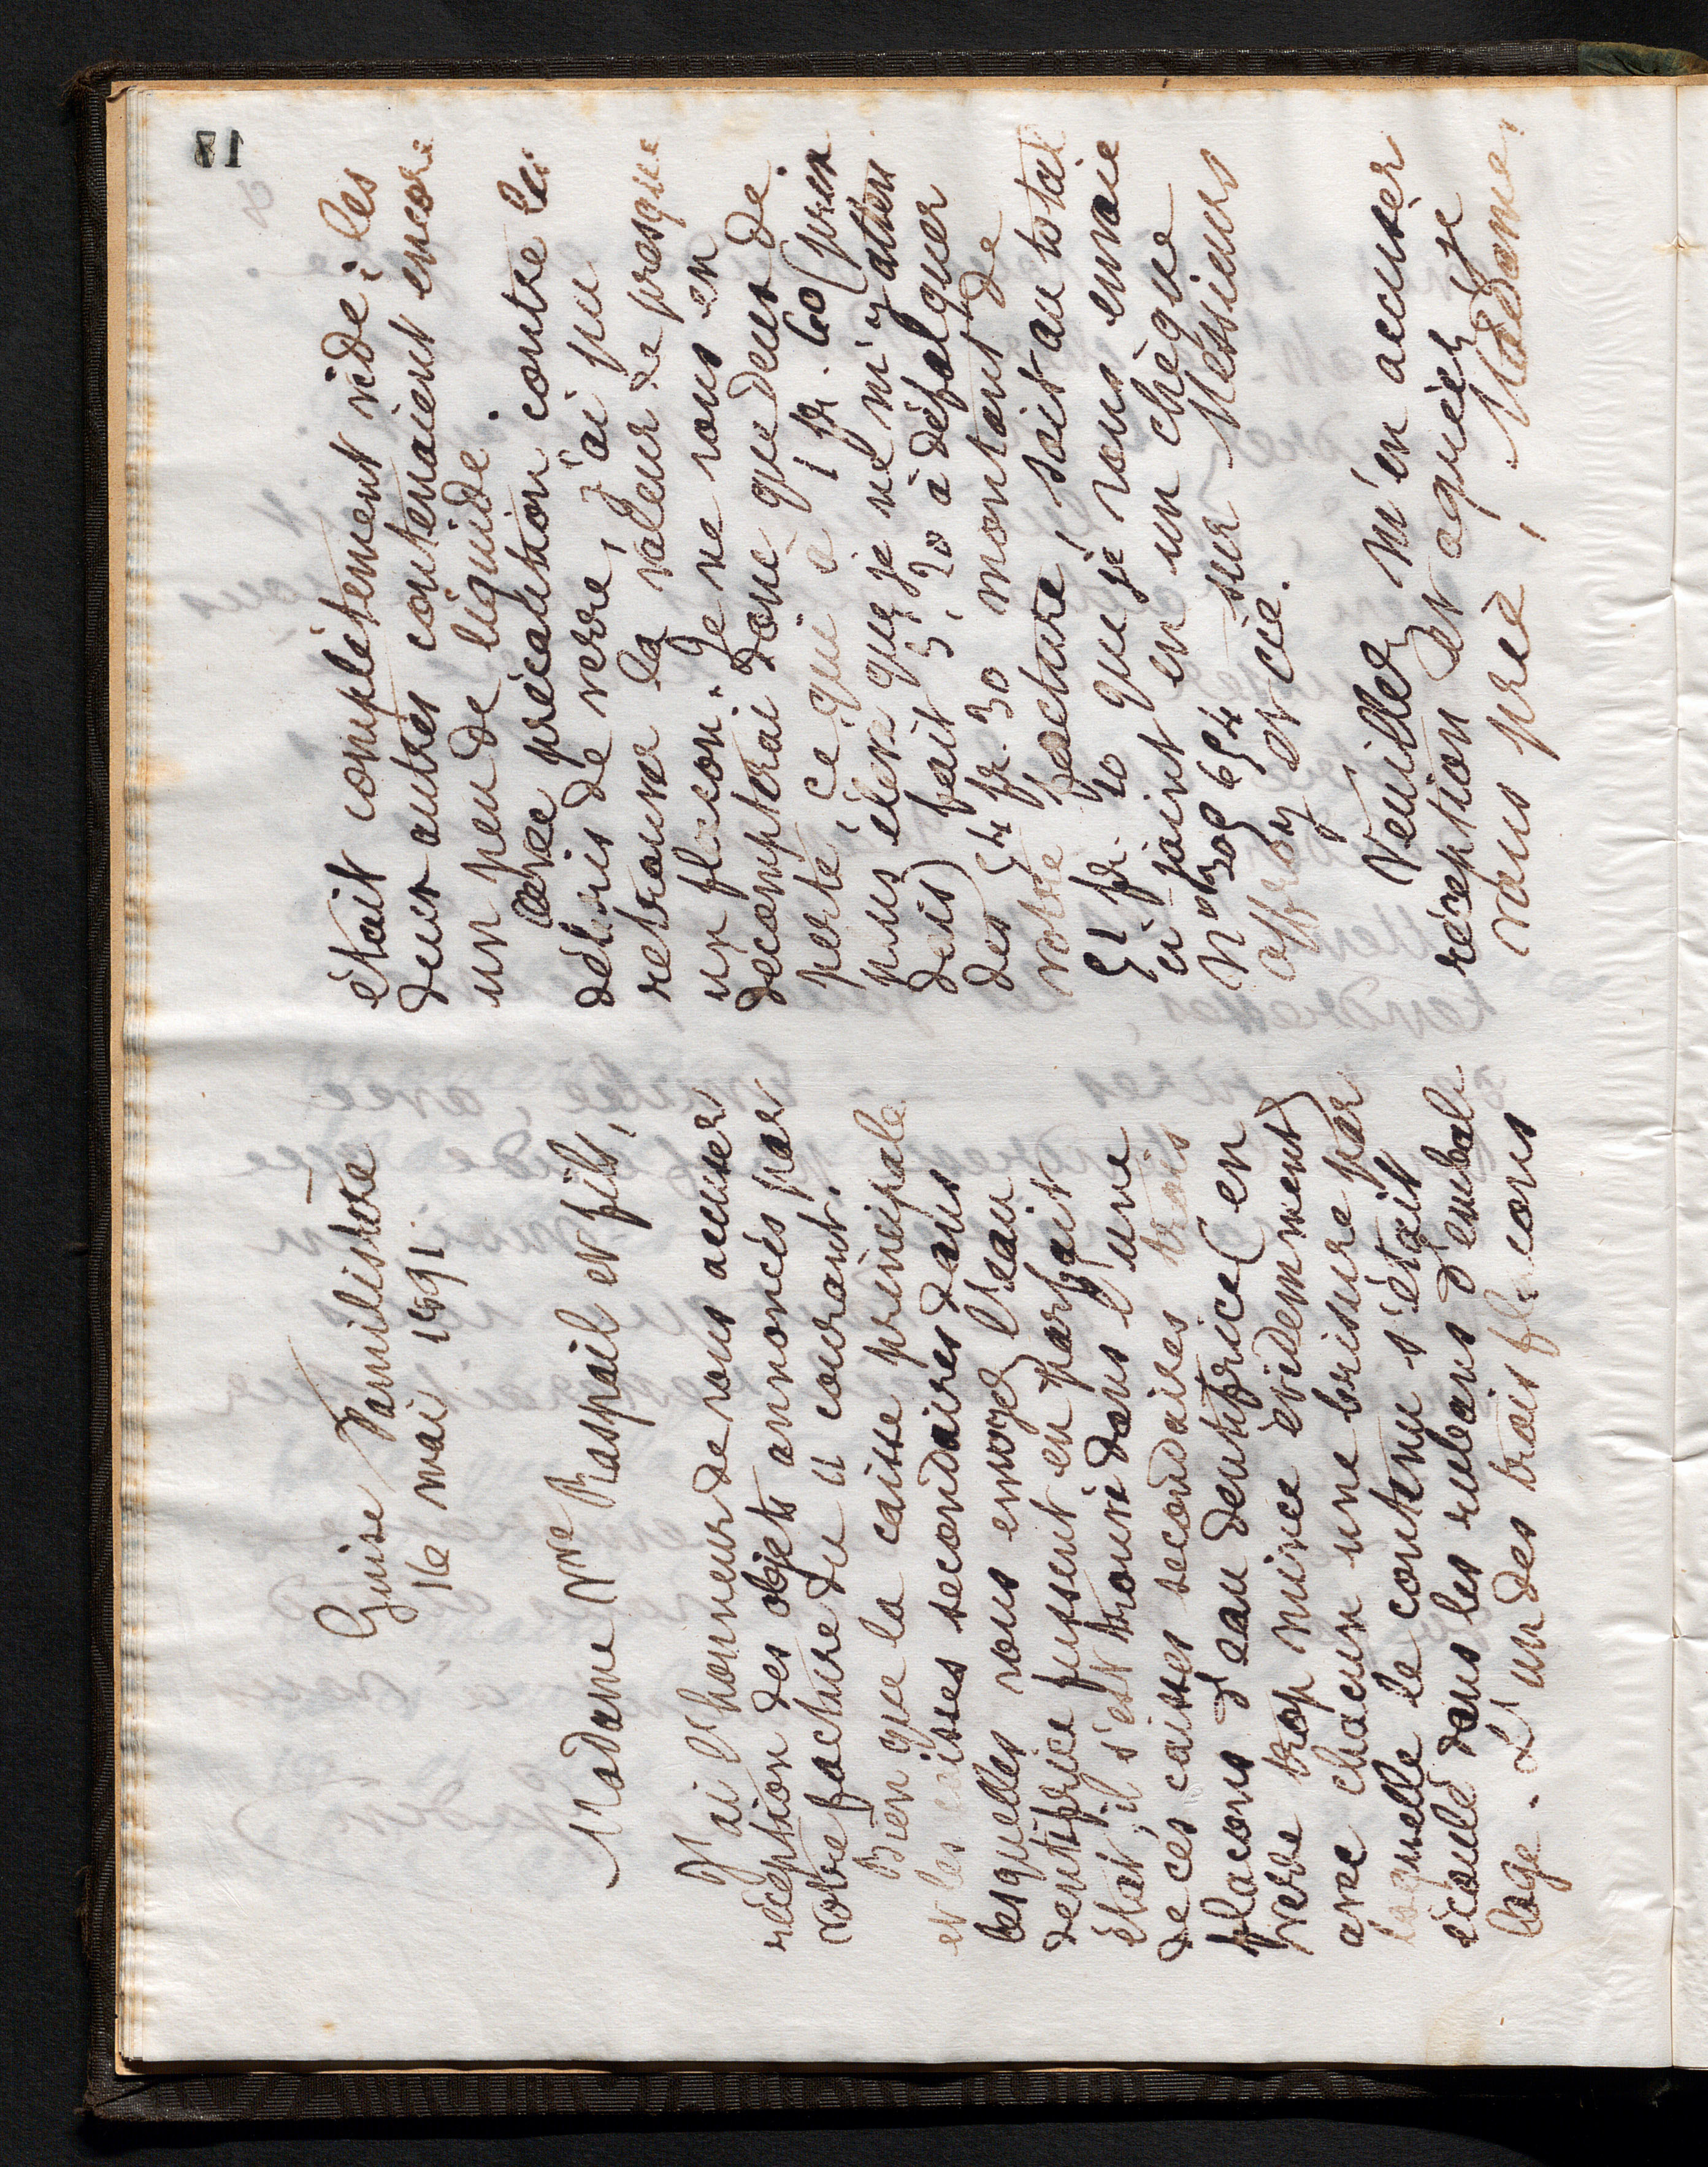 Guise Familistère
16 mai 1891
Madame Vve Raspail et fils,
J'ai l'honneur de vous accuser
réception des objets annoncés par
votre facture du 11 courant.
Bien que la caisse principale
et les caisses secondaires dans
lesquelles vous envoyez l'eau
dentifrice fussent en parfait
état, il s'est trouvé dans l'une
de ces caisses secondaires trois
flacons d'eau dentifrice (en
verre trop mince évidemment)
avec chacun une brisure par
laquelle le contenu s'était
écoulé dans les rubans d'embal-
lage. L'un des trois flacons
était complètement vide; les
deux autres contenaient encore
un peu de liquide.
Avec précaution contre les
débris de verre, j'ai pu
retrouver la valeur de presque
un flacon. Je ne vous en
décompterai donc que deux de
perte, ce qui à 1 fr. 60 (prix
plus élevé que je ne m'y atten
dais) fait 3, 20 à défalquer
des 54 fr. 30 montant de
votre facture, soit au total
51 fr. 10 que je vous envoie
ci-joint en un chèque
No 309654 sur Messieurs
Offroy et Cie.
Veuillez m'en accuser
réception et agréer, je
vous prie, Madame,
17